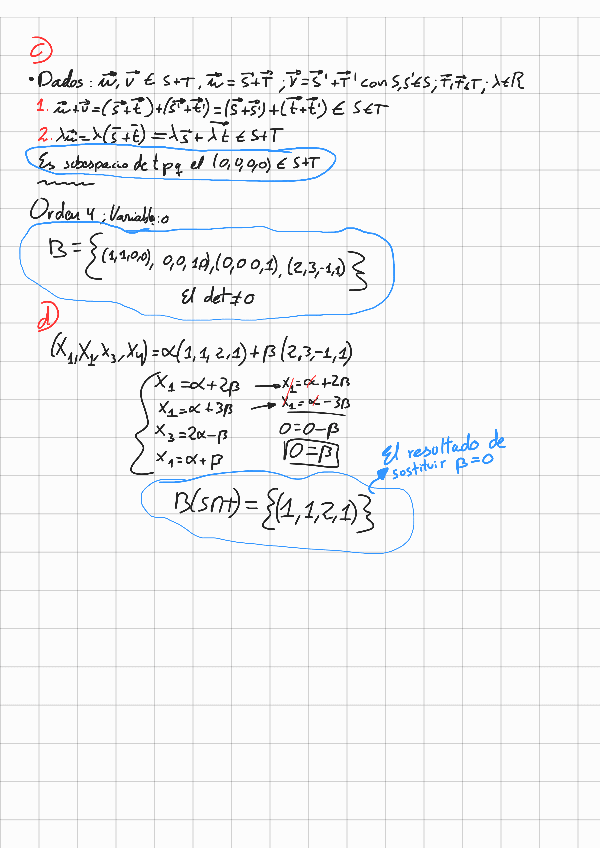 c)
• Dados: u⃗, v⃗ ∈ S+T, u⃗ = s⃗+t⃗ ; v⃗ = s⃗'+t⃗' con s,s'∈S; t⃗,t⃗'∈T; λ∈R
1. u⃗+v⃗=(s⃗+t⃗)+(s⃗'+t⃗')=(s⃗+s⃗')+(t⃗+t⃗') ∈ S∈T
2. λu⃗=λ(s⃗+t⃗)=λs⃗+λt⃗ ∈ S+T
Es subespacio de t pq el (0,0,0,0) ∈ S+T
Orden 4; Variable:0
B = {(1,1,0,0), 0,0,1,0),(0,0 0,1),(2,3,-1,1)}
El det≠0
d)
(X₁,X₁,X₃,X₄)=α(1,1,2,1)+β(2,3,-1,1)
X₁=α+2β → X₁=α+2β
X₁=α+3β → X₁=α-3β
X₃=2α-β 0=0-β
X₁=α+β 0=β
El resultado de
sostituir β=0
B(s∩t)={(1,1,2,1)}